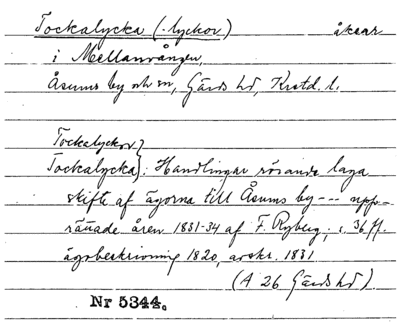 Tockalycka (-lyckor) åkrar
i Mellanvången,
Åsums by och sn, Gärds hd, Kristd. l.
Tockalyckor}
Tockalycka}: Handlingar rörande laga
skifte af ägorna till Åsums by --- upp-
rättade åren 1831-34 af F. Ryberg; s. 36 ff.
ägobeskrivning 1820, avskr. 1831
(A 26 Gärds hd)
Nr 5344.